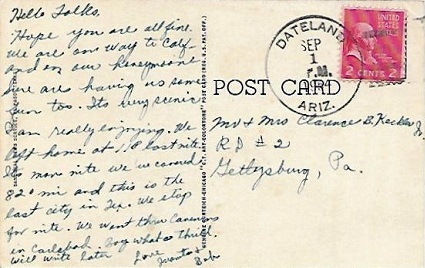 Hello Folks,
Hope you are all fine.
We are on way to Calif
and on our honeymoon
sure are having us some
fun too. Its very scenic
am really enjoying. We
left home at 1 P. last nite.
To mon nite we've covered
820 mi and this is the
last city in Tex. We stop
for nite. We went thru Caverns
in Carlsbad. Boy what a thrill.
will write later Love
DATELAND
SEP
1
P.M.
ARIZ.
UNITED STATES
2 CENTS 2
POST CARD
Mr & Mrs Clarence B. Keckler Jr.
RD # 2
Gettysburg, Pa.